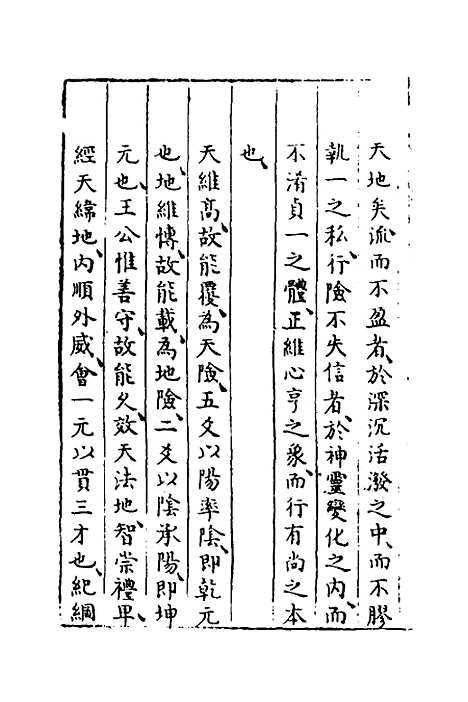 天地矣、流而不盈者、於深沉活潑之中、而不膠
執一之私、行險不失信者、於神靈變化之內、而
不淆貞一之體、正維心亨之象、而行有尚之本
也、
天維高、故能覆、為天險、五爻以陽率陰、即乾元
也、地維博、故能載、為地險、二爻以陰承陽、即坤
元也、王公惟善守、故能久、效天法地、智崇禮畢、
經天緯地、內順外威、會一元以貫三才也、紀綱